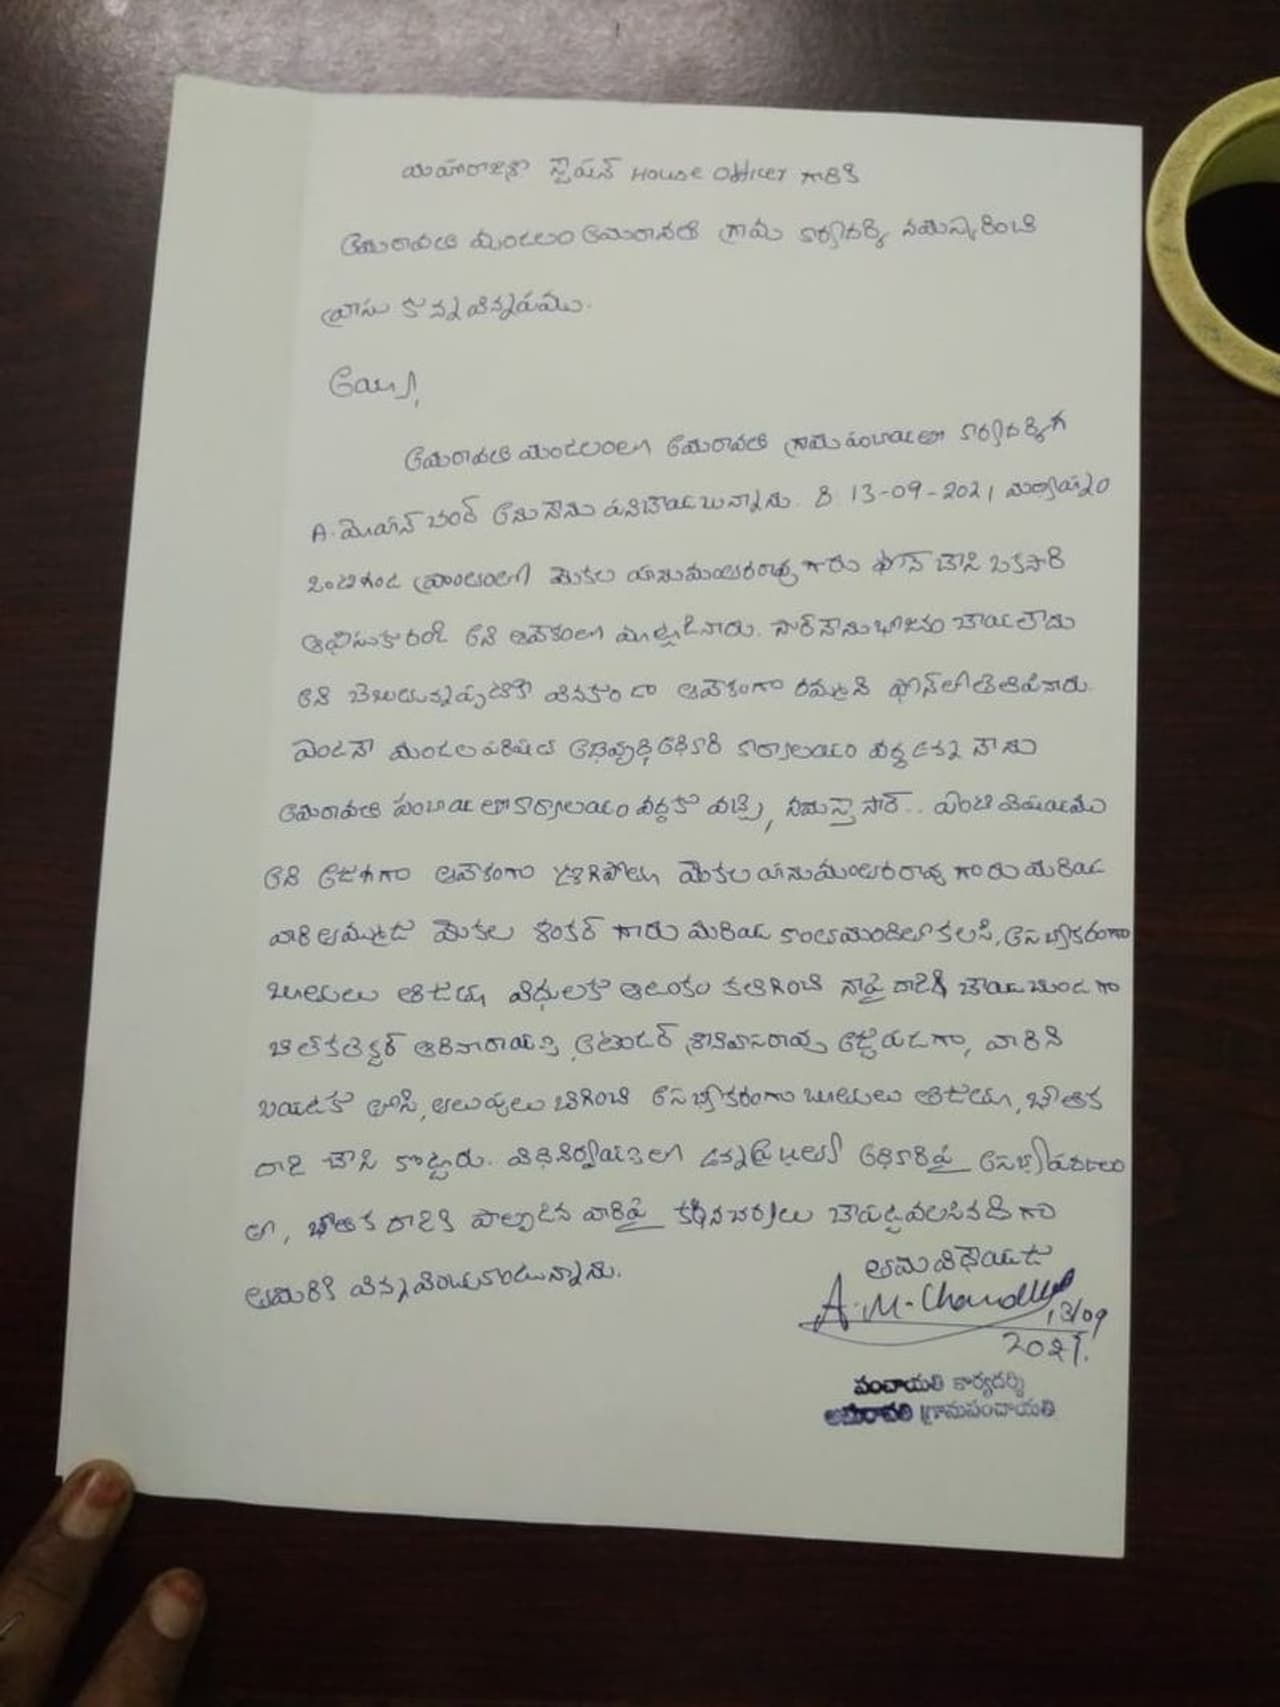 మహారాజశ్రీ స్టేషన్ House Officer గారికి
అమరావతి మండలం అమరావతి గ్రామ కార్యదర్శి నమస్కరించి
వ్రాసు కొన్న విన్నపము.
అయ్యా,
అమరావతి మండలంలో అమరావతి గ్రామ పంచాయతీ కార్యదర్శిగా
A. మోహన్ చంద్ అను నేను పనిచేయుచున్నాను. ది 13-09-2021 మధ్యాహ్నం
ఒంటిగంట ప్రాంతంలో మేకల హనుమంతరావు గారు ఫోన్ చేసి ఒకసారి
ఆఫీసుకు రండి అని ఆవేశంలో మాట్లాడినారు. సార్ నేను భోజనం చేయలేదు
అని చెబుతున్నప్పటికీ వినకుండా ఆవేశంగా రమ్మని ఫోన్‌లో తెలిపినారు.
వెంటనే మండల పరిషత్ అభివృద్ధి అధికారి కార్యాలయం వద్ద ఉన్న నేను
అమరావతి పంచాయతీ కార్యాలయం వద్దకు వచ్చి, నమస్తే సార్.. ఏంటి విషయము
అని అడగగా ఆవేశంగా ఊగిపోతూ మేకల హనుమంతరావు గారు మరియు
వారి తమ్ముడు మేకల శంకర్ గారు మరియు కొంతమందితో కలసి, అసభ్యకరంగా
బూతులు తిడుతూ, విధులకు ఆటంకం కలిగించి నాపై దాడికి చేయుచుండగా
బిల్ కలెక్టర్ హరినారాయణ, అటెండర్ శ్రీనివాసరావు అడ్డుపడగా, వారిని
బయటకు తోసి, తలుపులు బిగించి అసభ్యకరంగా బూతులు తిడుతూ, భౌతిక
దాడి చేసి కొట్టారు. విధినిర్వహణలో ఉన్న ప్రభుత్వ అధికారిపై అసభ్య పదజాలం
తో, భౌతిక దాడికి పాల్పడిన వారిపై కఠిన చర్యలు చేపట్టవలసినదిగా
తమరికి విన్నవించుకొంటున్నాను.
తమ విధేయుడు
A. M. Chand
13/09
2021.
పంచాయతి కార్యదర్శి
అమరావతి గ్రామపంచాయతి